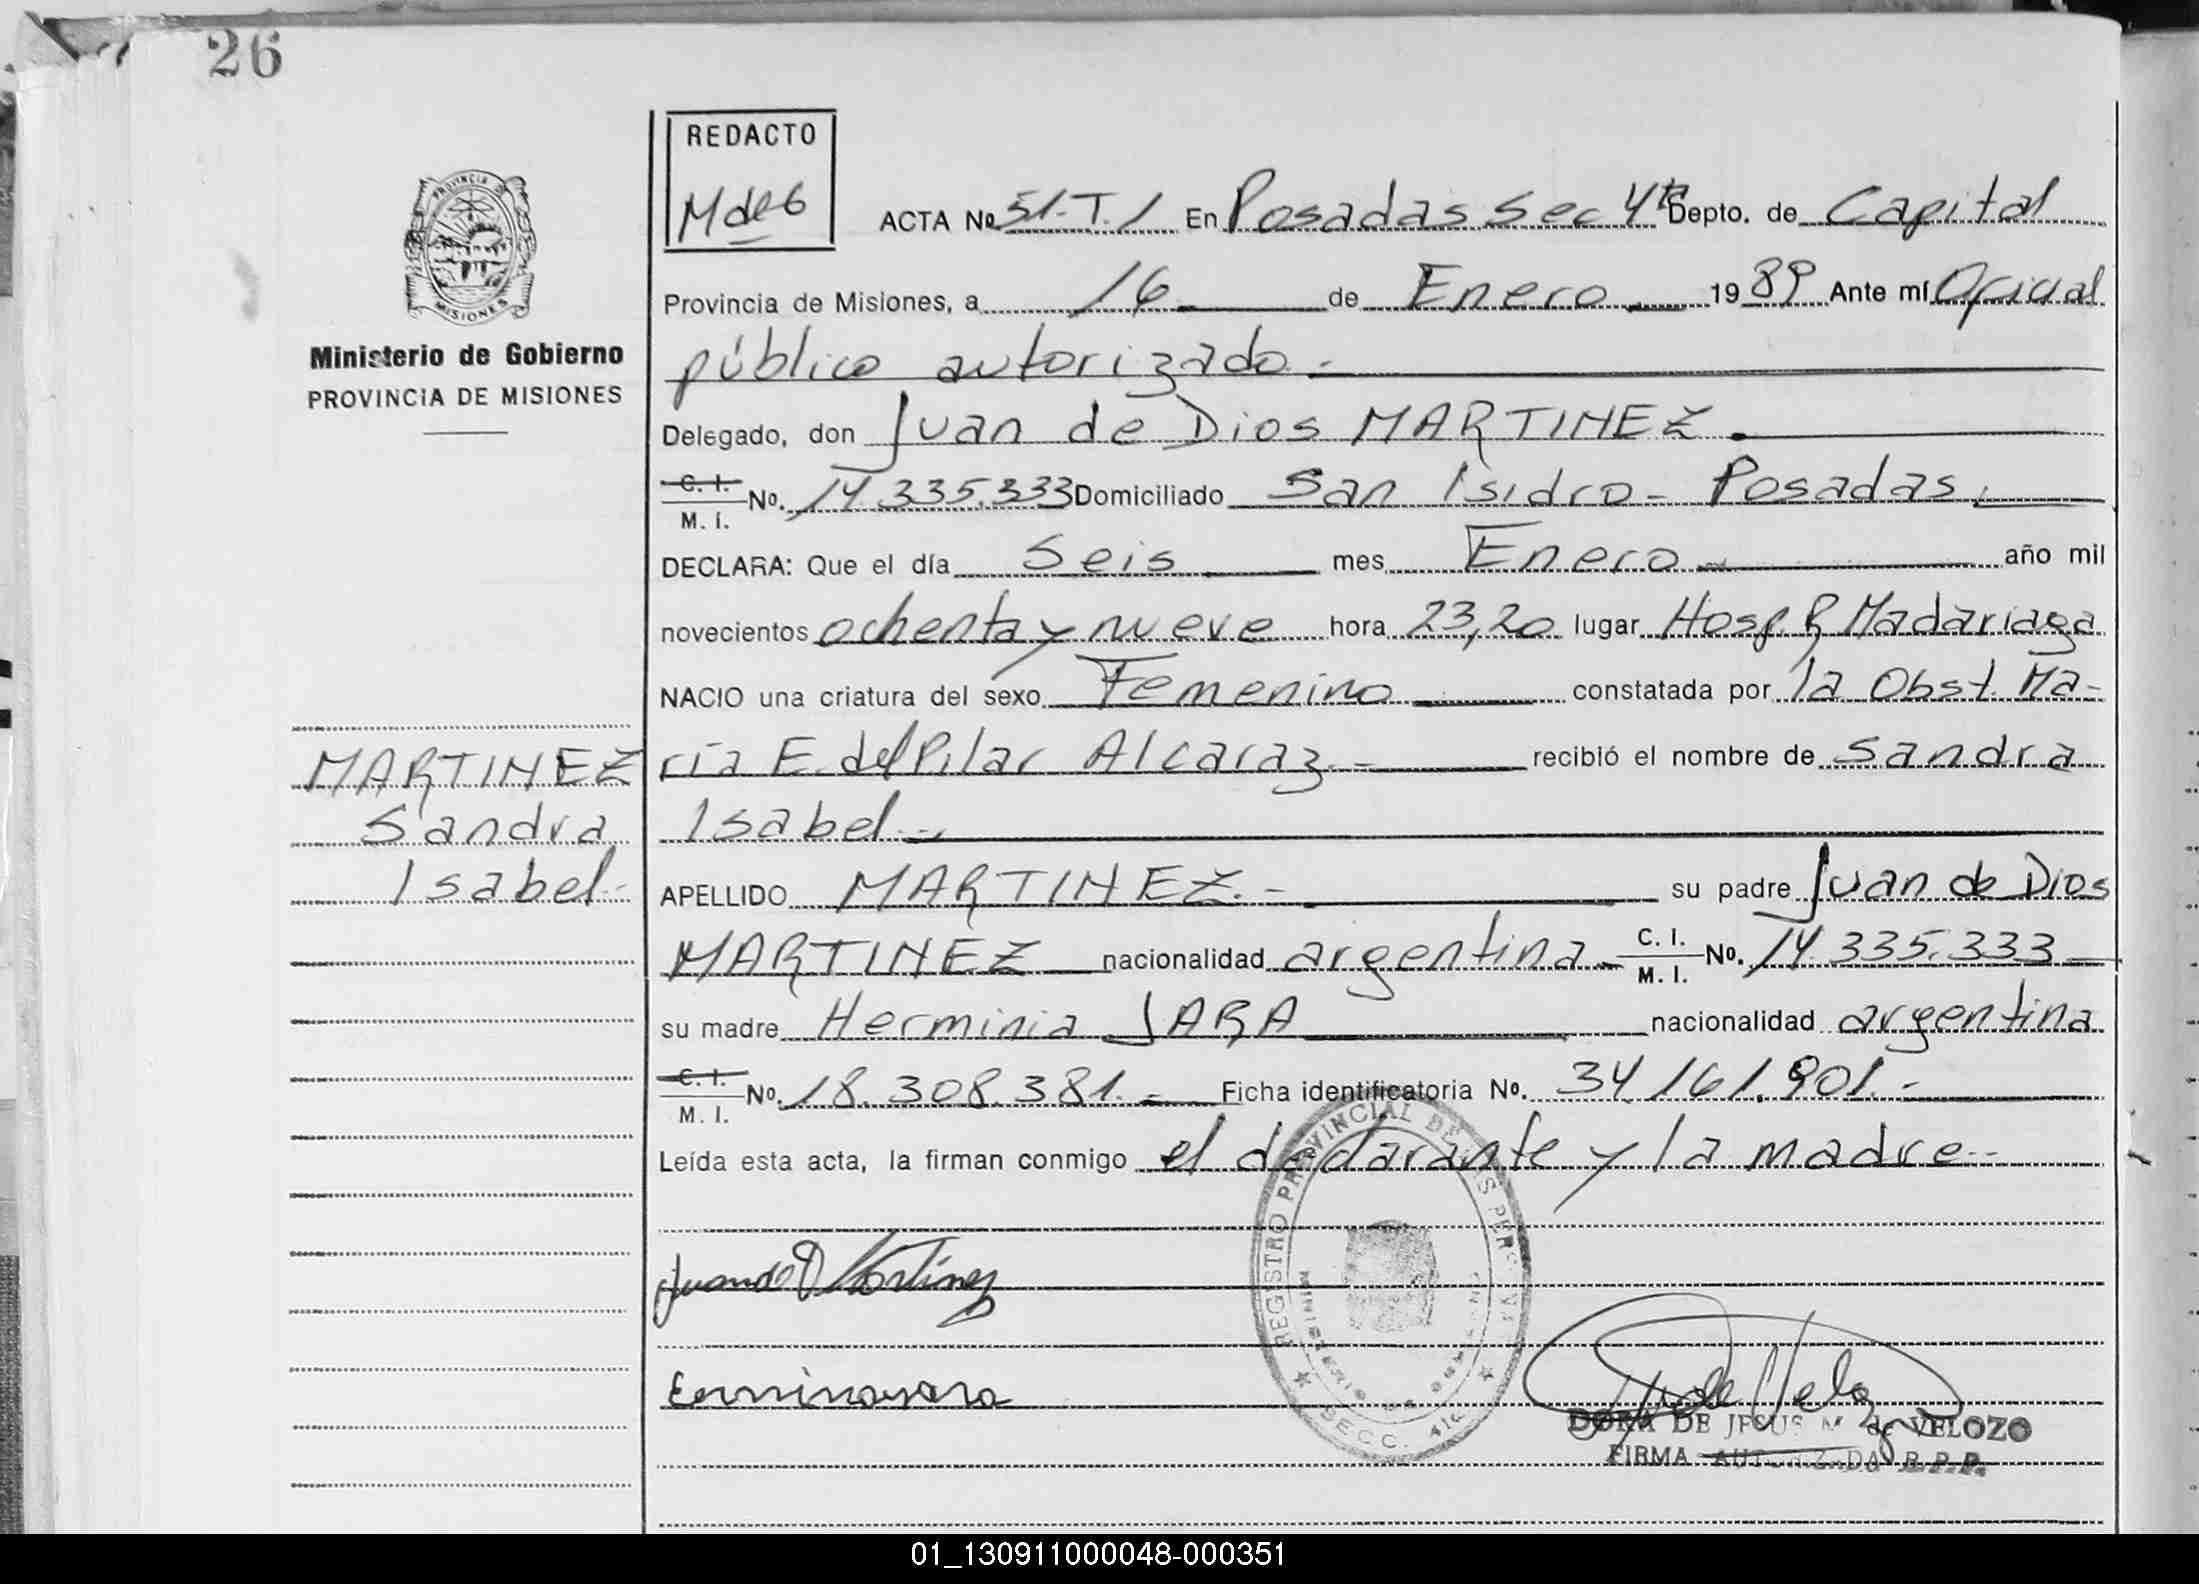 26
REDACTO
M de G
ACTA No. 51-T.1 En Posadas Sec 4ta Depto. de Capital
Provincia de Misiones, a 16 de Enero 1989 Ante mí Oficial
público autorizado.-
Delegado, don Juan de Dios MARTINEZ.
C. I. M. I. No. 14.335.333 Domiciliado San Isidro - Posadas.
DECLARA: Que el día Seis mes Enero año mil
novecientos ochenta y nueve hora 23,20 lugar Hosp. R Madariaga
NACIO una criatura del sexo Femenino constatada por la Obst. Ma-
ría E. del Pilar Alcaraz.- recibió el nombre de Sandra
Isabel.-
APELLIDO MARTINEZ.- su padre Juan de Dios
MARTINEZ nacionalidad argentina C. I. M. I. No. 14.335.333
su madre Herminia JARA nacionalidad argentina
C. I. M. I. No. 18.308.381.- Ficha identificatoria No. 34.161.901.-
Leída esta acta, la firman conmigo el declarante y la madre.-
Juan de D Martinez
PROVINCIA DE
MISIONES
Ministerio de Gobierno
PROVINCIA DE MISIONES
MARTINEZ
Sandra
Isabel.-
REGISTRO PROVINCIAL DE LAS PERS
MINISTERIO DE GOBIERNO
SECC. 4ta
DORA DE JESUS M. de VELOZO
FIRMA AUTORIZADA R.P.P.
01_130911000048-000351